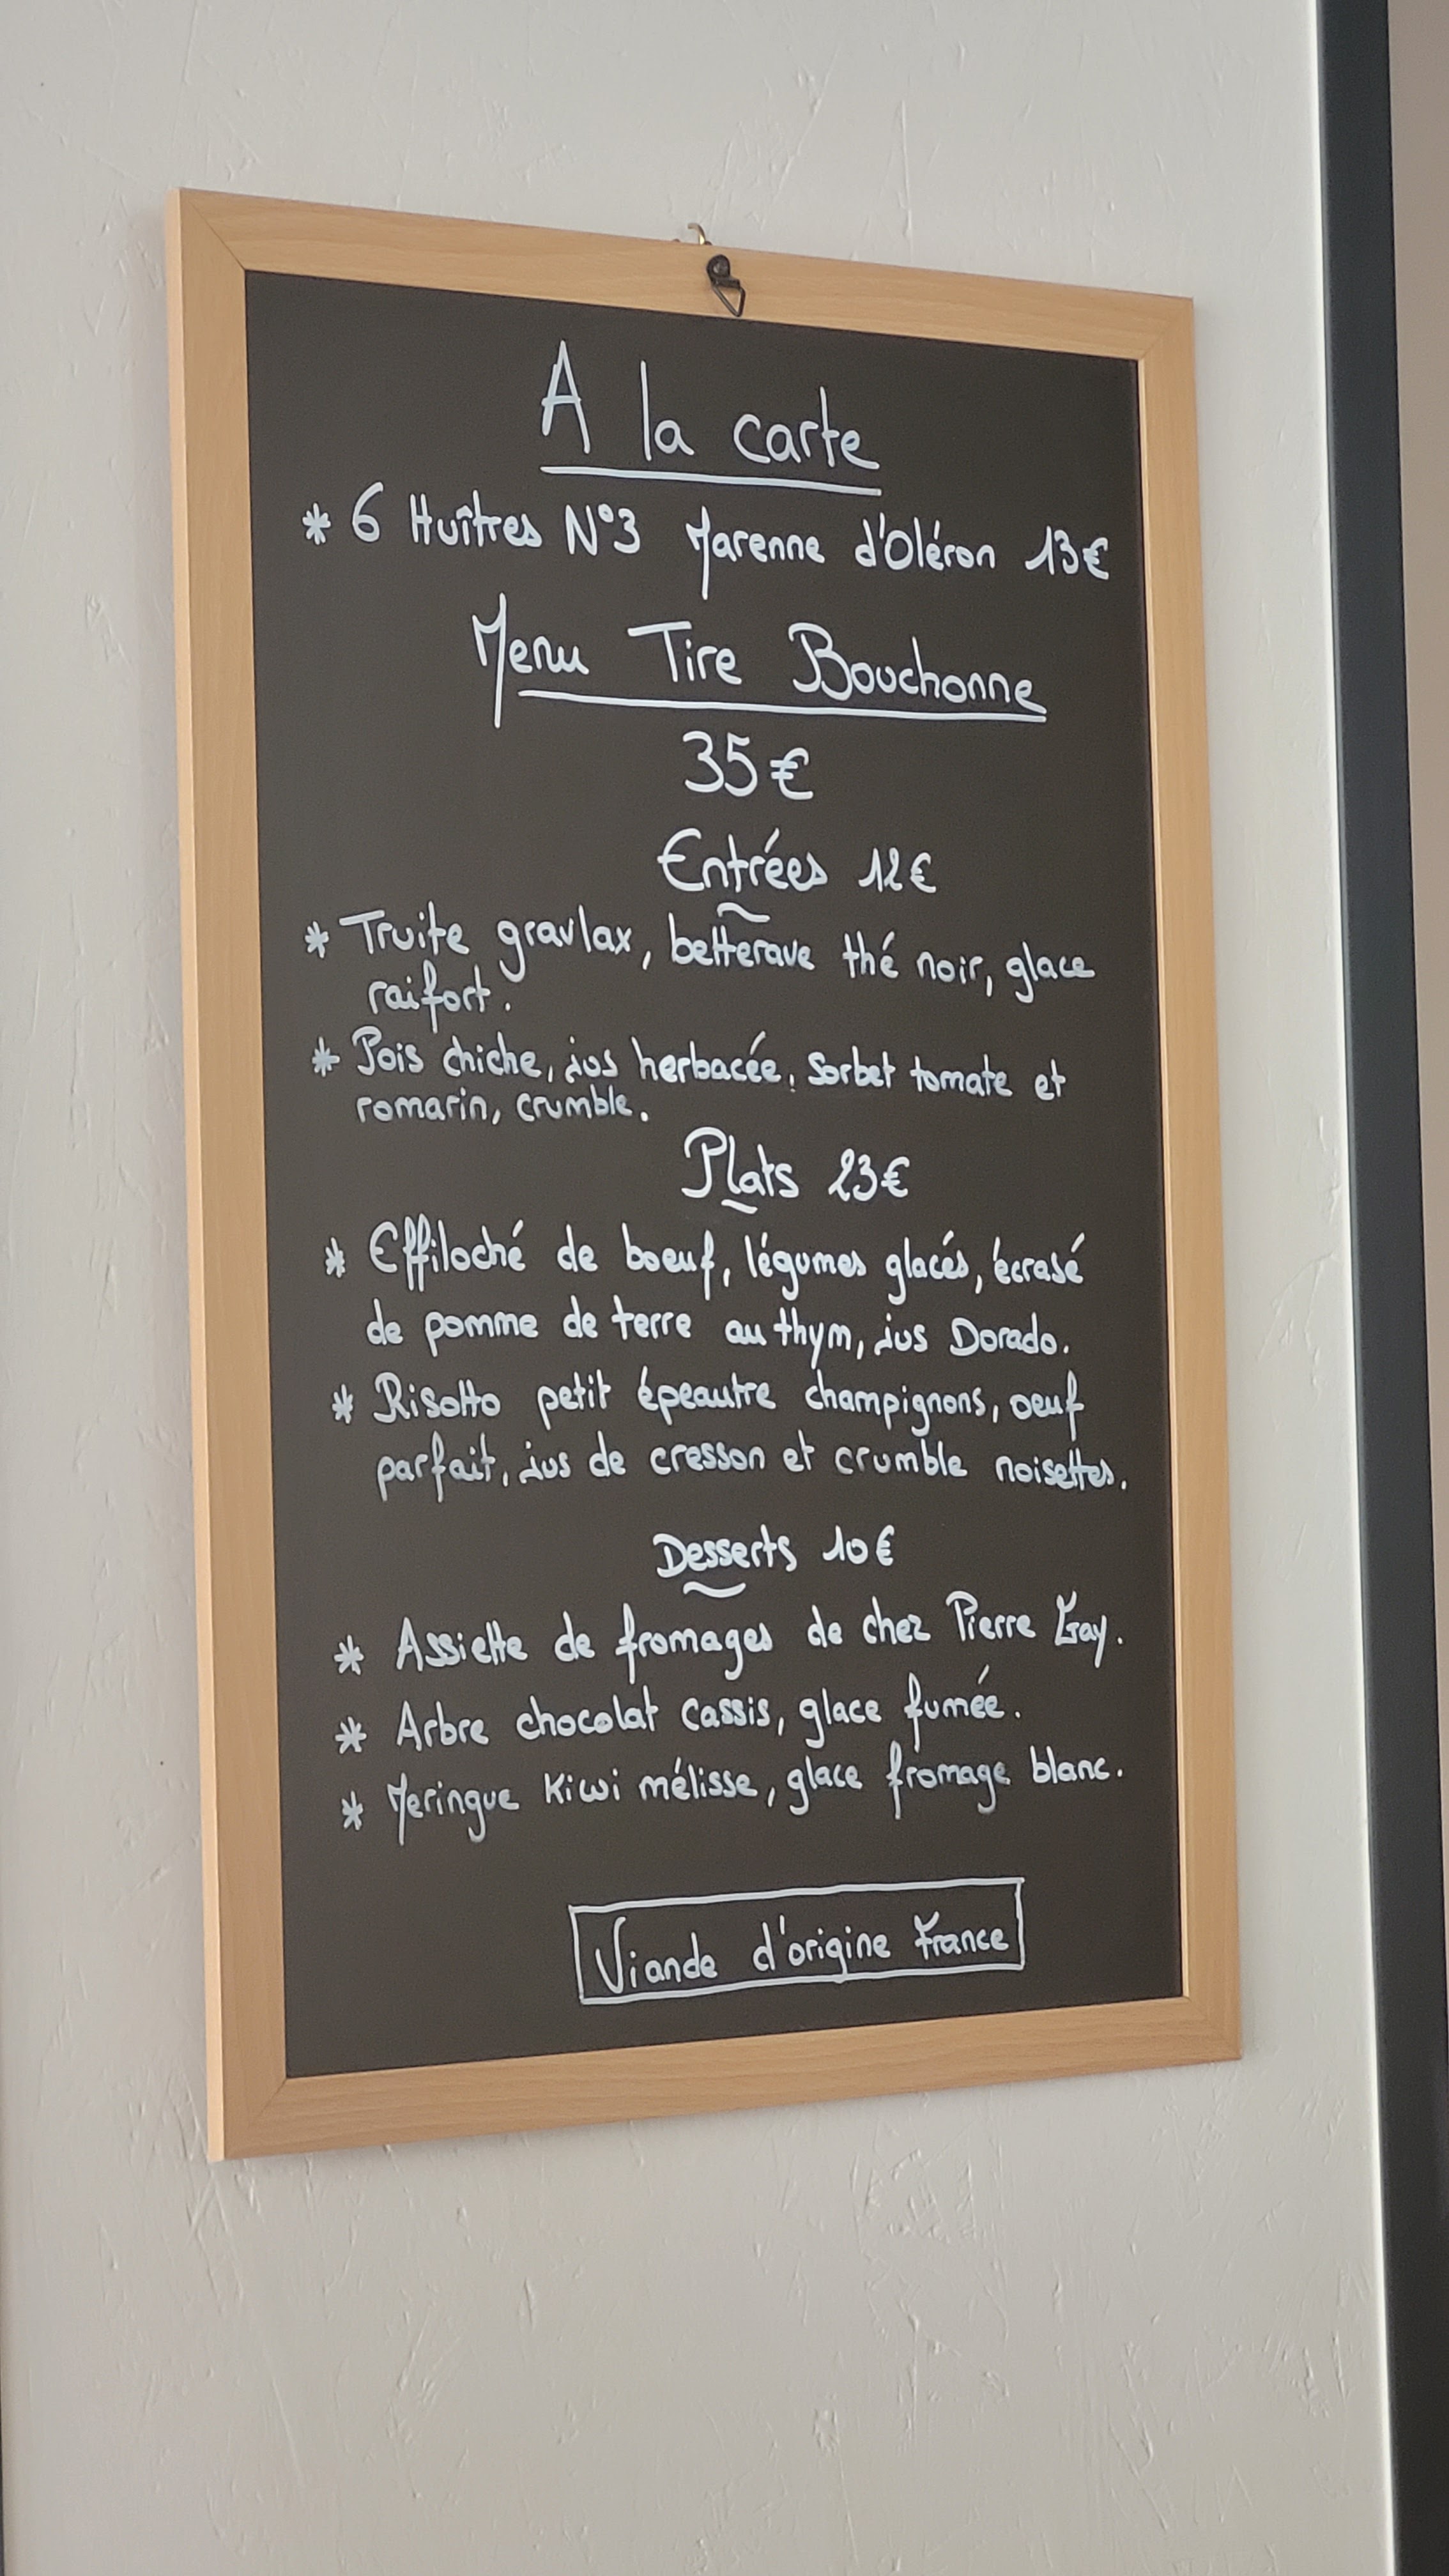 A la carte
* 6 Huîtres N°3 Marenne d'Oléron 13€
Menu Tire Bouchonne
35€
Entrées 12€
* Truite gravlax, betterave thé noir, glace
raifort.
* Pois chiche, jus herbacée, Sorbet tomate et
romarin, crumble.
Plats 23€
* Effiloché de boeuf, légumes glacés, écrasé
de pomme de terre au thym, jus Dorado.
* Risotto petit épeautre champignons, oeuf
parfait, jus de cresson et crumble noisettes.
Desserts 10€
* Assiette de fromages de chez Pierre Gay.
* Arbre chocolat cassis, glace fumée.
* Meringue Kiwi mélisse, glace fromage blanc.
Viande d'origine France